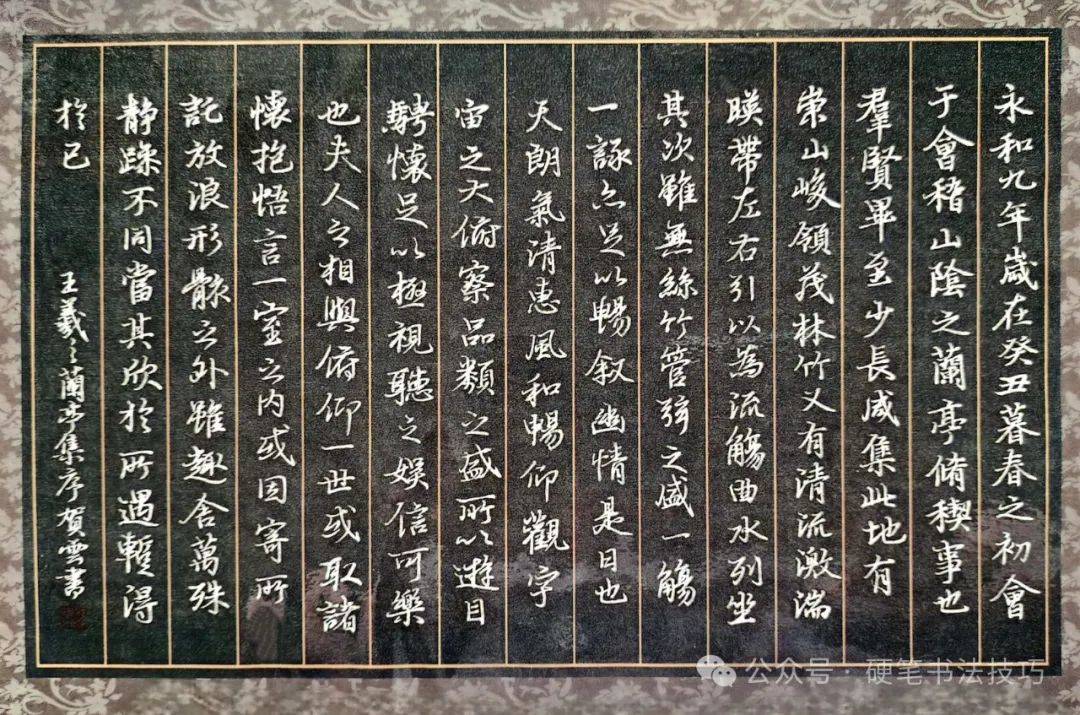 永和九年歲在癸丑暮春之初會
于會稽山陰之蘭亭脩稧事也
羣賢畢至少長咸集此地有
崇山峻領茂林竹又有清流激湍
暎帶左右引以為流觴曲水列坐
其次雖無絲竹管弦之盛一觴
一詠亦足以暢叙幽情是日也
天朗氣清惠風和暢仰觀宇
宙之大俯察品類之盛所以遊目
騁懷足以極視聽之娱信可樂
也夫人之相與俯仰一世或取諸
懷抱悟言一室之内或因寄所
託放浪形骸之外雖趣舍萬殊
静躁不同當其欣於所遇暫得
於己
王羲之蘭亭集序賀雲書
公众号·硬笔书法技巧